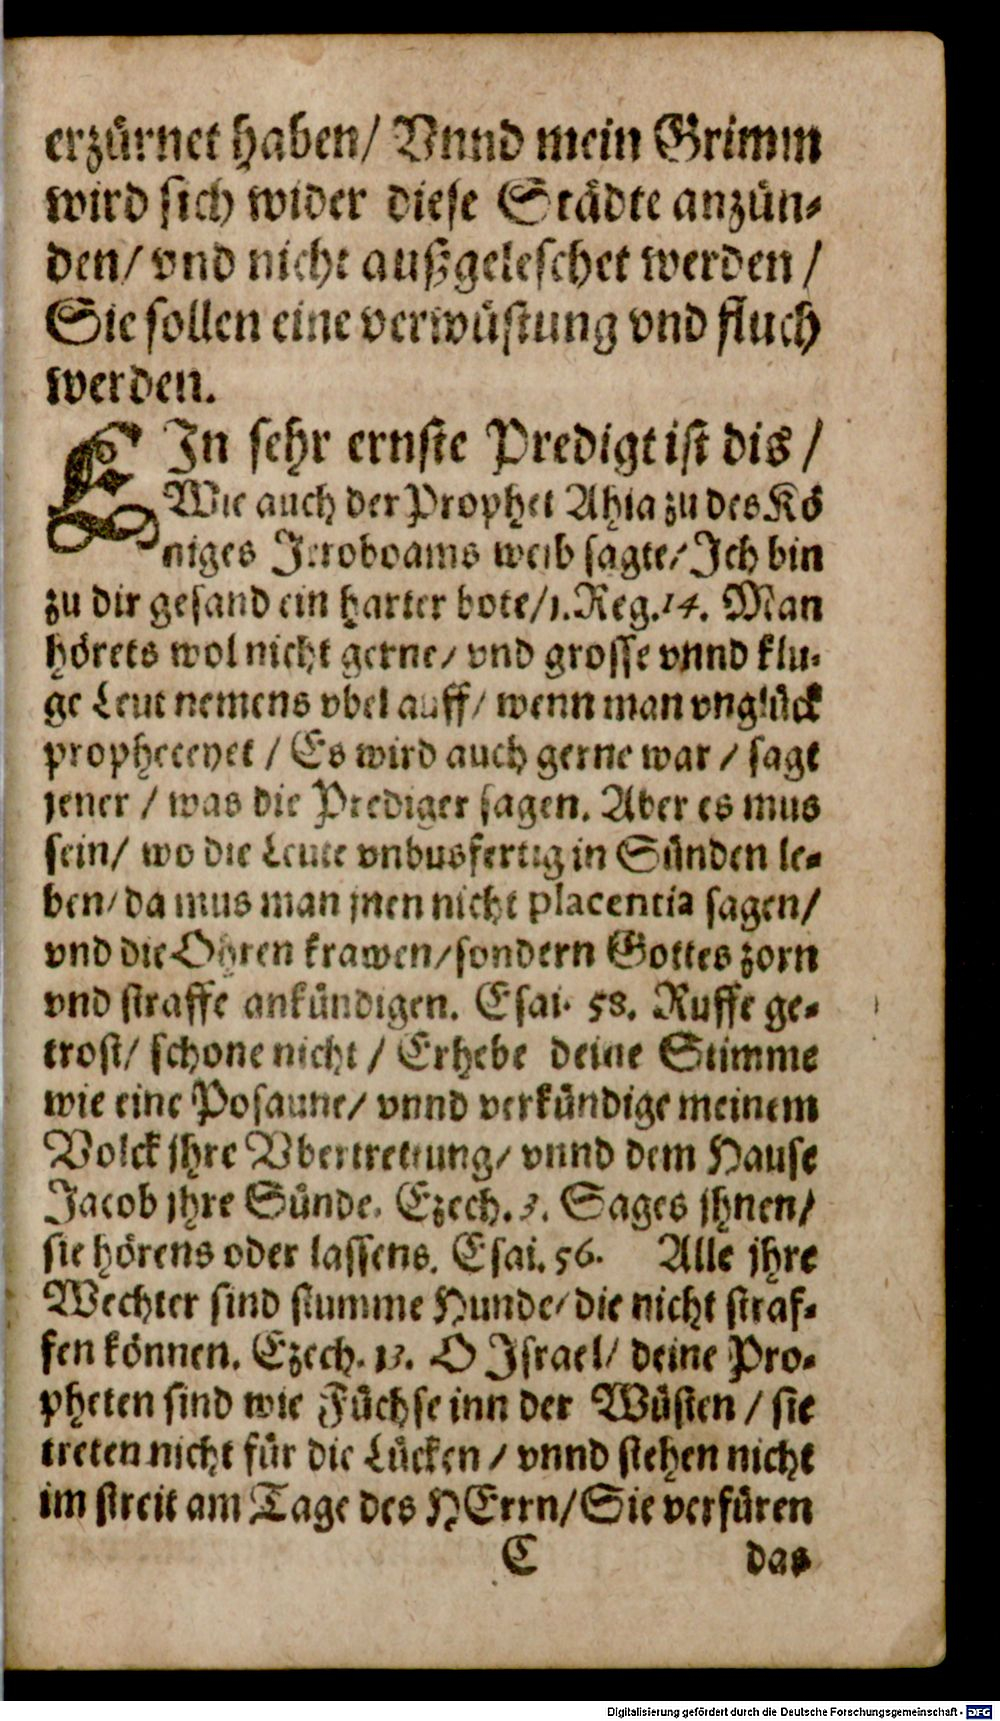 erzürnet haben/ Vnnd mein Grimm
wird sich wider diese Städte anzün-
den/ vnd nicht außgeleschet werden /
Sie sollen eine verwüstung vnd fluch
werden.
EIn sehr ernste Predigt ist dis /
Wie auch der Prophet Ahia zu des Kö
niges Jeroboams weib sagte/ Ich bin
zu dir gesand ein harter bote/1.Reg.14. Man
hörets wol nicht gerne/ vnd grosse vnnd klu-
ge Leut nemens vbel auff/ wenn man vnglück
propheceyet / Es wird auch gerne war / sagt
jener / was die Prediger sagen. Aber es mus
sein/ wo die Leute vnbusfertig in Sünden le-
ben/ da mus man jnen nicht placentia sagen/
vnd die Ohren krawen/sondern Gottes zorn
vnd straffe ankündigen. Esai. 58. Ruffe ge-
trost/ schone nicht / Erhebe deine Stimme
wie eine Posaune/ vnnd verkündige meinem
Volck jhre Vbertrettung/ vnnd dem Hause
Jacob jhre Sünde. Ezech. 3. Sages jhnen/
sie hörens oder lassens. Esai. 56. Alle jhre
Wechter sind stumme Hunde/ die nicht straf-
fen können. Ezech. 13. O Israel/ deine Pro-
pheten sind wie Füchse inn der Wüsten / sie
treten nicht für die Lücken / vnnd stehen nicht
im streit am Tage des HErrn/ Sie verfüren
C das
Digitalisierung gefördert durch die Deutsche Forschungsgemeinschaft - DFG